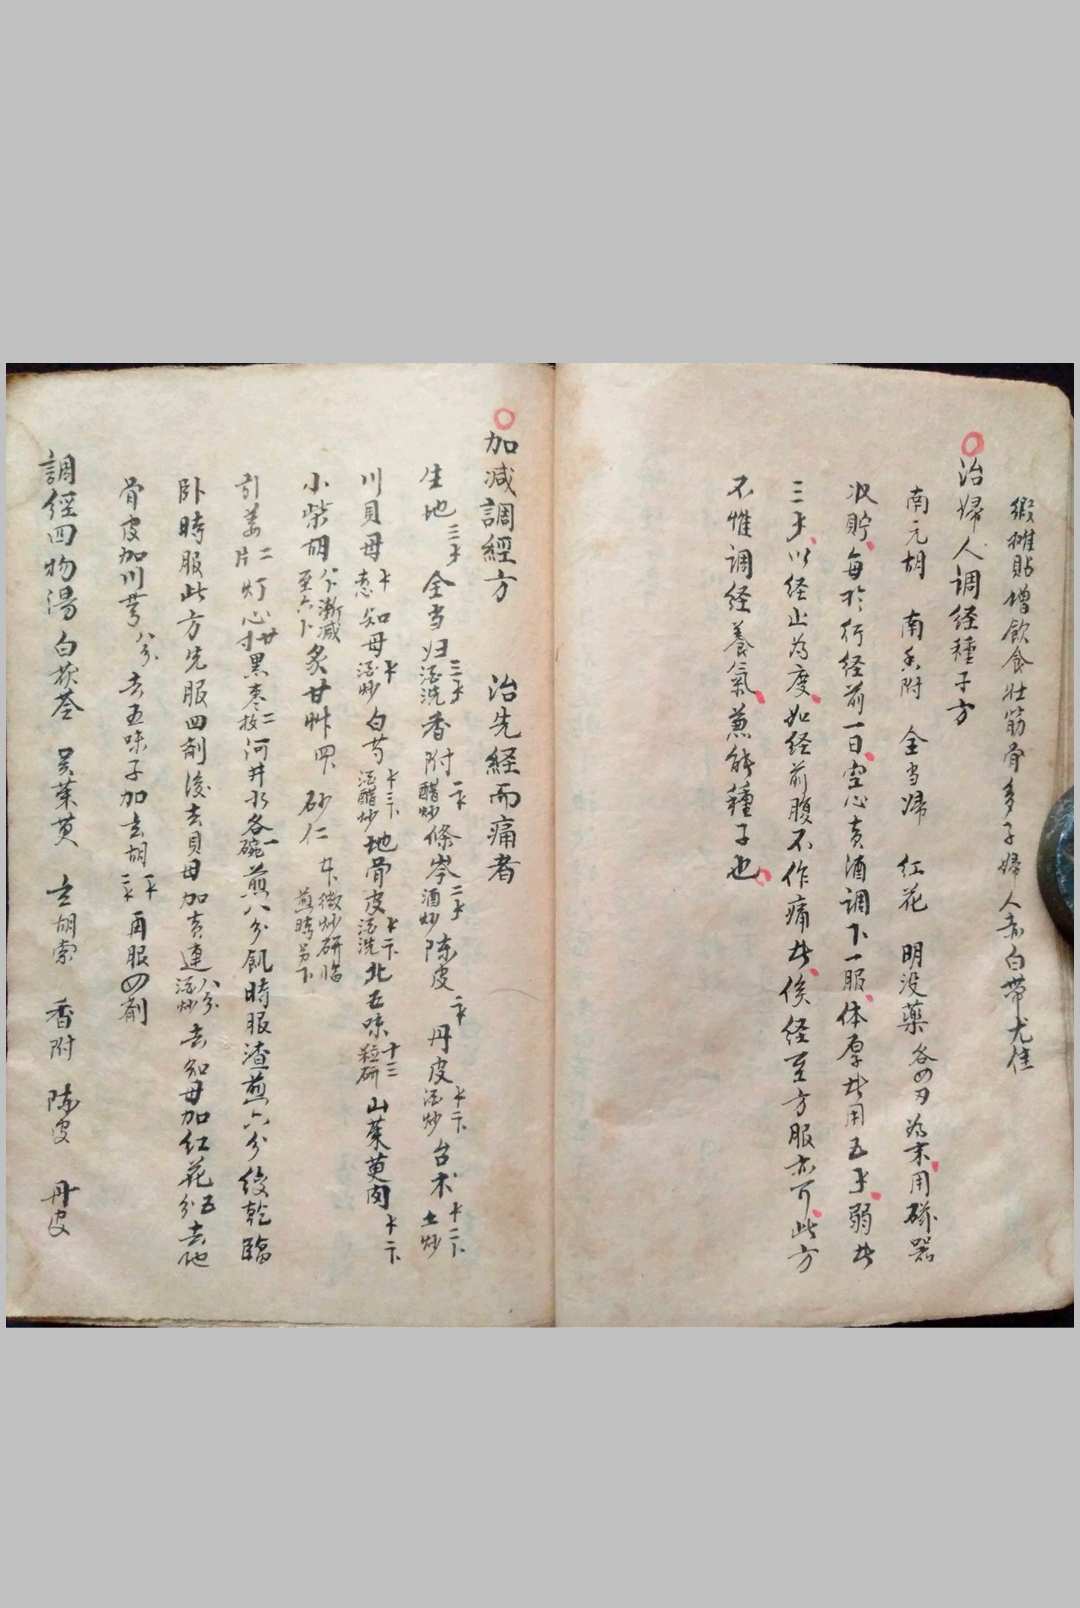 貼增飲食壯筋骨多子婦人赤白帶尤佳
治婦人調经種子方
南元胡 南香附 全当归 红花 明没藥 各四刃为末用磁器
收貯每於行经前一日空心黄酒調下一服体厚者用五 弱者
三 以经止為度如经前腹不作痛者俟经至方服亦可此方
不惟調经養氣兼能種子也
加减調經方 治先経而痛者
生地 全当归酒洗 香附醋炒 條芩酒炒 陈皮 丹皮酒炒 台术土炒
川貝母 知母酒炒 白芍酒醋炒 地骨皮酒洗 北五味十三粒研 山茱萸肉
小柴胡 漸减至六 炙甘艸 砂仁 微炒研临煎時另下
引姜二片 灯心廿寸 黑枣二枚 河井水各一碗煎八分飢時服渣煎六分後乾臨
卧時服此方先服四劑後去貝母加黄連八分酒炒去知母加红花五分去地
骨皮加川芎八分去五味子加玄胡 再服四劑
調經四物湯 白茯苓 吴茱萸 玄胡索 香附 陈皮 丹皮